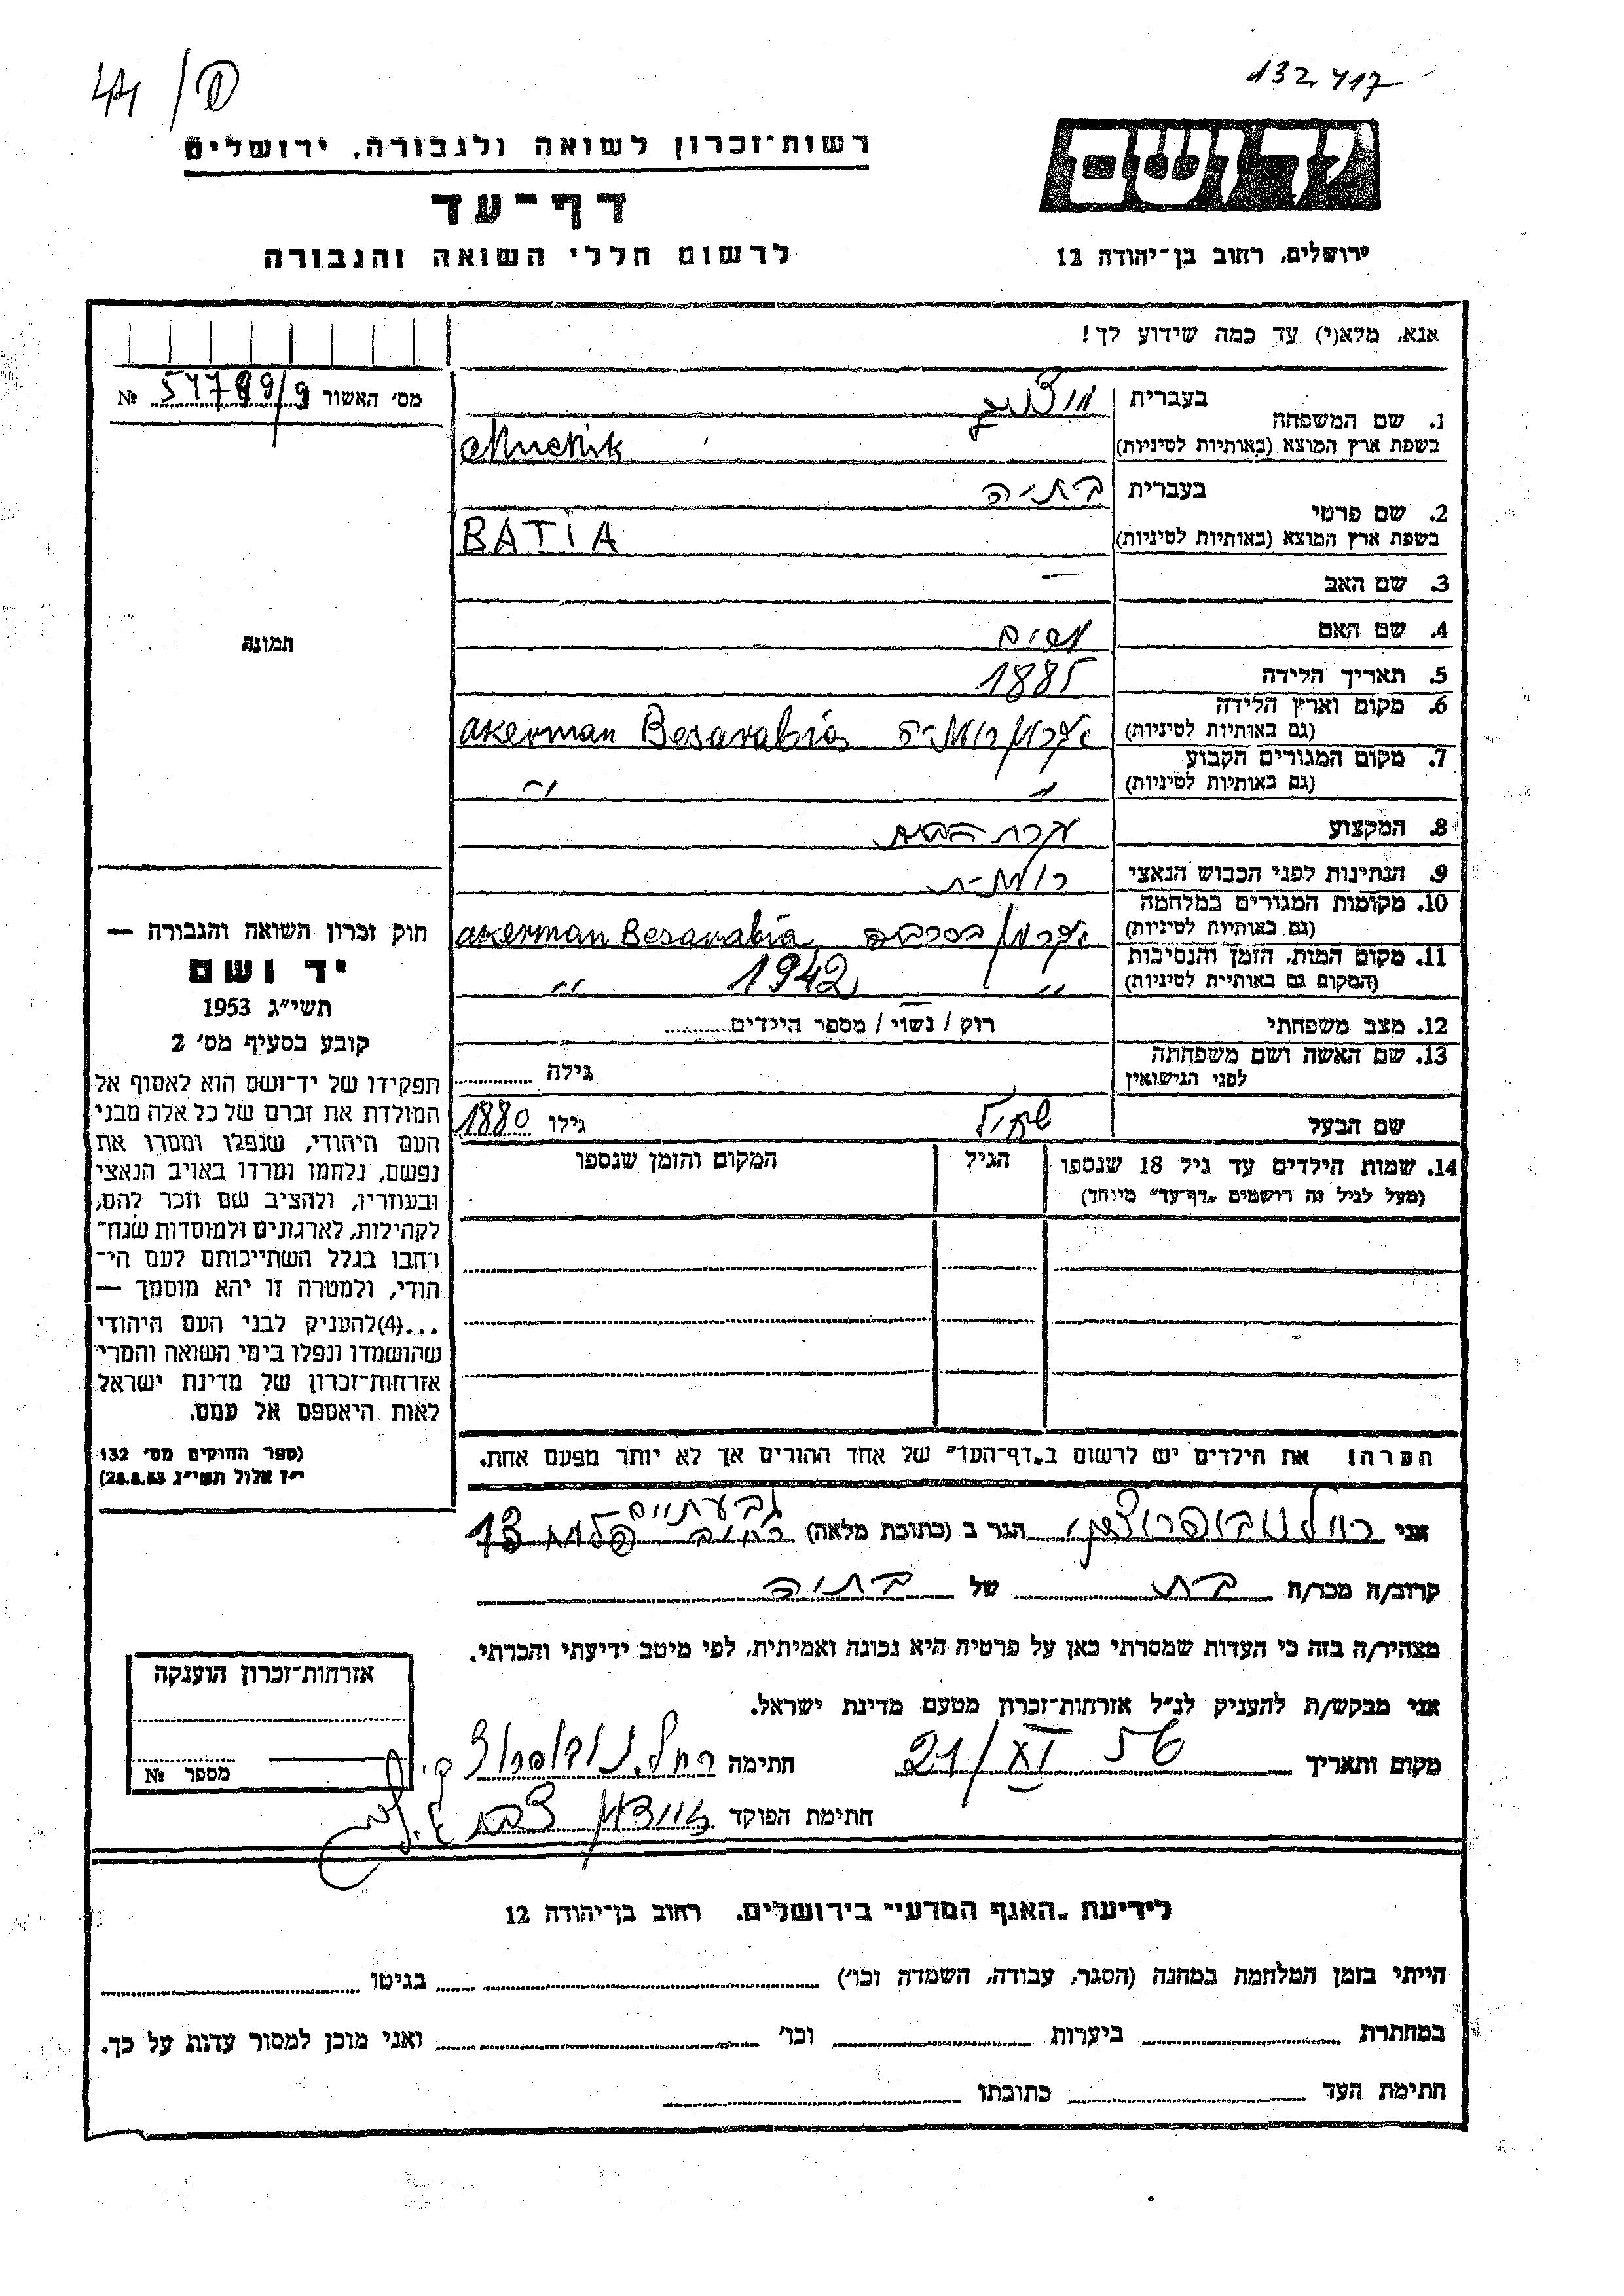 132417
44/
רשות־זכרון לשואה ולגבורה, ירושלים
דף־עד
לרשום חללי השואה והגבורה
יד ושם
ירושלים, רחוב בן־יהודה 12
אנא, מלא(י) עד כמה שידוע לך!
מס׳ האשור № 57799/9
1. שם המשפחה
בעברית מוצניק
בשפת ארץ המוצא (באותיות לטיניות) Mucnik
2. שם פרטי
בעברית בתיה
בשפת ארץ המוצא (באותיות לטיניות) BATIA
3. שם האב —
4. שם האם מרים
5. תאריך הלידה 1885
6. מקום וארץ הלידה
(גם באותיות לטיניות) אקרמן רומניה akerman Besarabia
7. מקום המגורים הקבוע
(גם באותיות לטיניות) " "
8. המקצוע עקרת הבית
9. הנתינות לפני הכבוש הנאצי רומנית
10. מקומות המגורים במלחמה
(גם באותיות לטיניות) אקרמן בסרביה akerman Besarabia
11. מקום המות, הזמן והנסיבות
(המקום גם באותיית לטיניות) " 1942 "
12. מצב משפחתי רוק / נשוי / מספר הילדים
13. שם האשה ושם משפחתה
לפני הנישואין גילה
שם הבעל שמואל גילו 1880
14. שמות הילדים עד גיל 18 שנספו הגיל המקום והזמן שנספו
(מעל לגיל זה רושמים „דף־עד״ מיוחד)
הערה! את הילדים יש לרשום ב„דף־העד״ של אחד ההורים אך לא יותר מפעם אחת.
תמונה
חוק זכרון השואה והגבורה —
יד ושם
תשי״ג 1953
קובע בסעיף מס׳ 2
תפקידו של יד־ושם הוא לאסוף אל
המולדת את זכרם של כל אלה מבני
העם היהודי, שנפלו ומסרו את
נפשם, נלחמו ומרדו באויב הנאצי
ובעוזריו, ולהציב שם וזכר להם,
לקהילות, לארגונים ולמוסדות שנח־
רבו בגלל השתייכותם לעם הי־
הודי, ולמטרה זו יהא מוסמך —
...(4)להעניק לבני העם היהודי
שהושמדו ונפלו בימי השואה והמרי
אזרחות־זכרון של מדינת ישראל
לאות היאספם אל עמם.
(ספר החוקים מס׳ 132
י״ז אלול תשי״ג 28.8.53)
גבעתיים
אני רחל הגר ב (כתובת מלאה) רחוב 13
קרוב/ה מכר/ה בת של בתיה
מצהיר/ה בזה כי העדות שמסרתי כאן על פרטיה היא נכונה ואמיתית, לפי מיטב ידיעתי והכרתי.
אני מבקש/ת להעניק לנ״ל אזרחות־זכרון מטעם מדינת ישראל.
מקום ותאריך 21/XI 56 חתימה רחל
חתימת הפוקד
אזרחות־זכרון הוענקה
מספר №
לידיעת „האגף המדעי״ בירושלים. רחוב בן־יהודה 12
הייתי בזמן המלחמה במחנה (הסגר, עבודה, השמדה וכו׳) בגיטו
במחתרת ביערות וכו׳ ואני מוכן למסור עדות על כך.
חתימת העד כתובתו